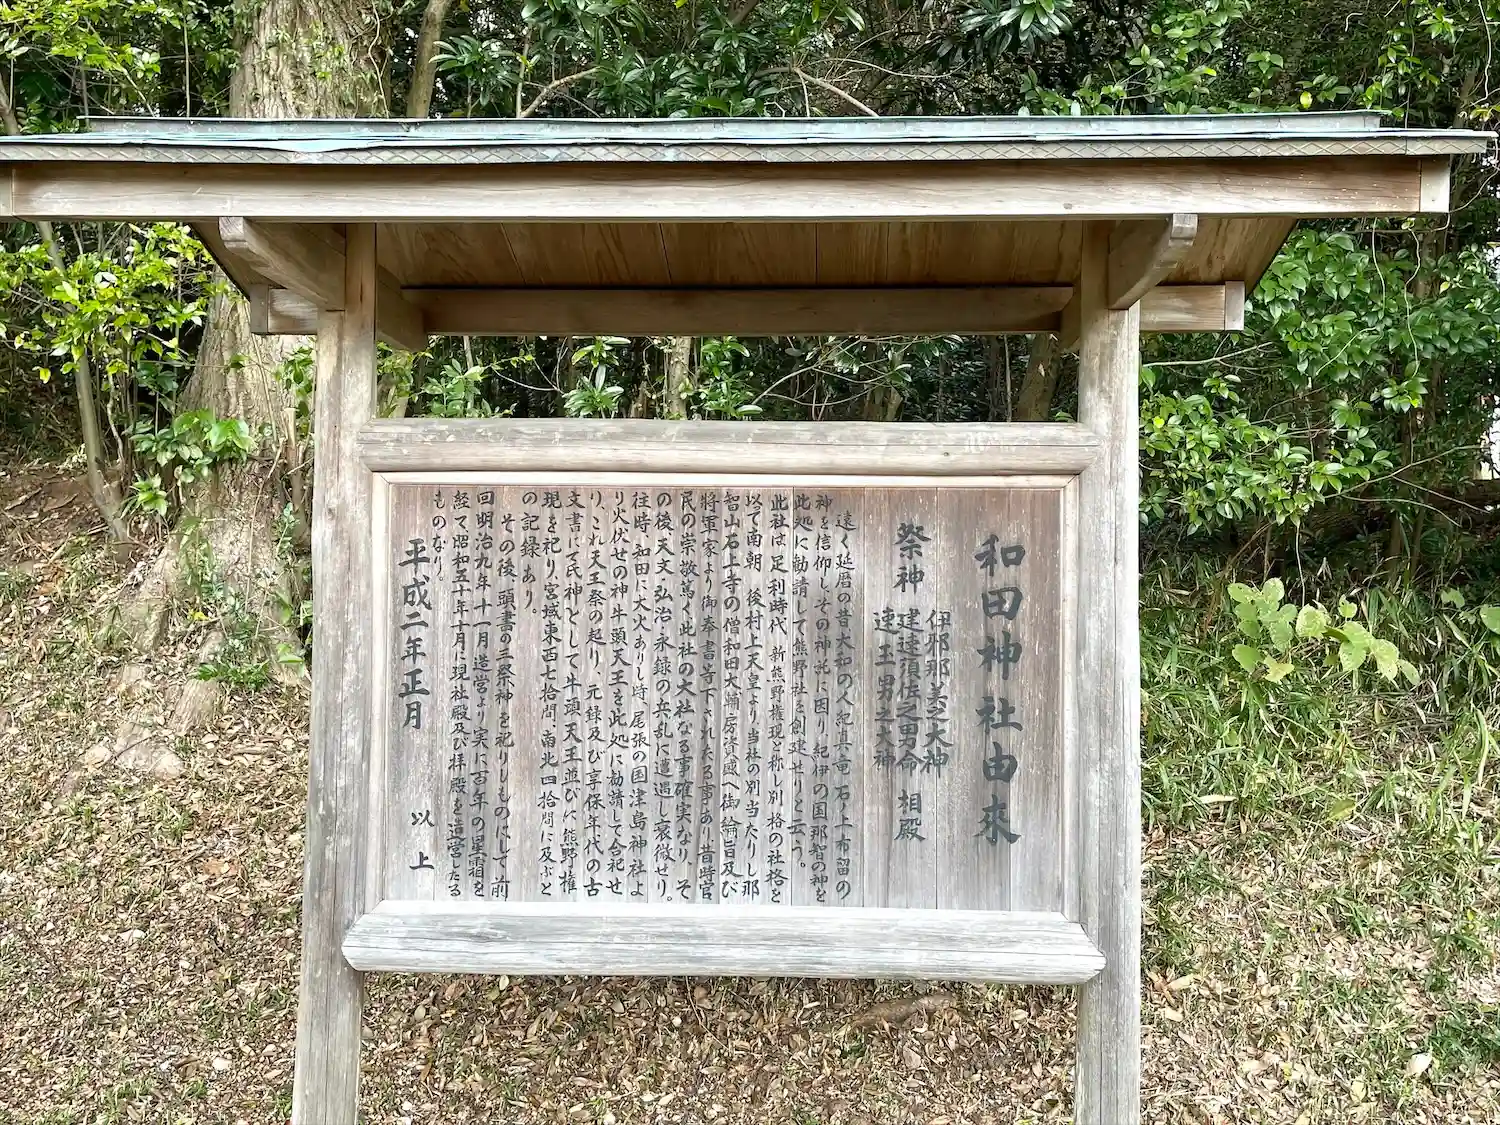 和田神社由来
伊邪那美之大神
祭神 建速須佐之男命 相殿
速玉男之大神
遠く延暦の昔大和の人紀真竜石ノ上布留の
神を信仰しその神託に因り紀伊の国那智の神を
此処に勧請して熊野社を創建せりと云う。
此社は足利時代、新熊野権現と称し別格の社格を
以て南朝、後村上天皇より当社の別当たりし那
智山石上寺の僧和田大輔房濱盛へ御綸旨及び
将軍家より御奉書等下されたる事あり昔時官
民の崇敬篤く此社の大社なる事確実なり、そ
の後天文・弘治・永録の兵乱に遭遇し衰微せり。
往時、和田に大火ありし時、尾張の国津島神社よ
り火伏せの神牛頭天王を此処に勧請して合祀せ
り、これ天王祭の起り、元録及び享保年代の古
文書にて氏神として牛頭天王並びに熊野権
現を祀り宮域東西七拾間、南北四拾間に及ぶと
の記録あり。
その後、頭書の三祭神を祀りしものにして前
回明治九年十一月造営より実に百年の星霜を
経て昭和五十年十月、現社殿及び拝殿を造営したる
ものなり。
平成二年正月 以上